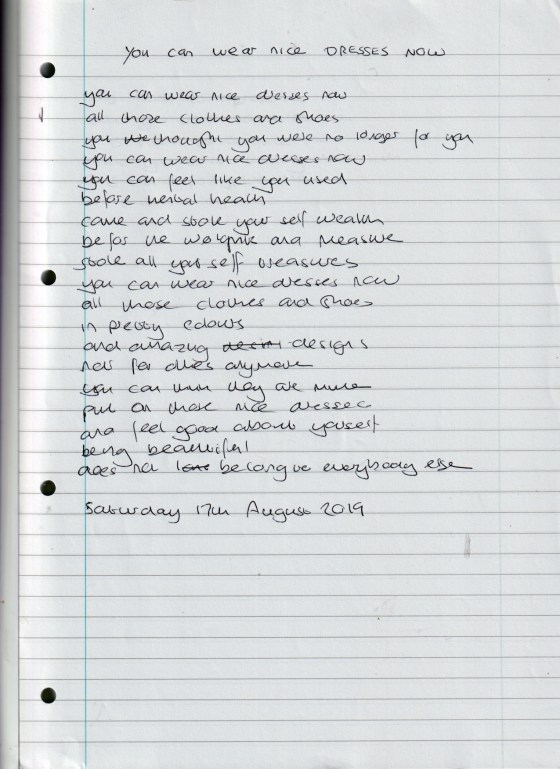 You can wear nice DRESSES NOW
you can wear nice dresses now
all those clothes and shoes
you thought you were no longer for you
you can wear nice dresses now
you can feel like you used
before herbal health
came and stole your self wealth
before the and measure
stole all your self treasures
you can wear nice dresses now
all those clothes and shoes
in pretty colours
and amazing designs
not for others anymore
you can think they are mine
put on those nice dresses
and feel good about yourself
being beautiful
does not belong to everybody else
Saturday 17th August 2019